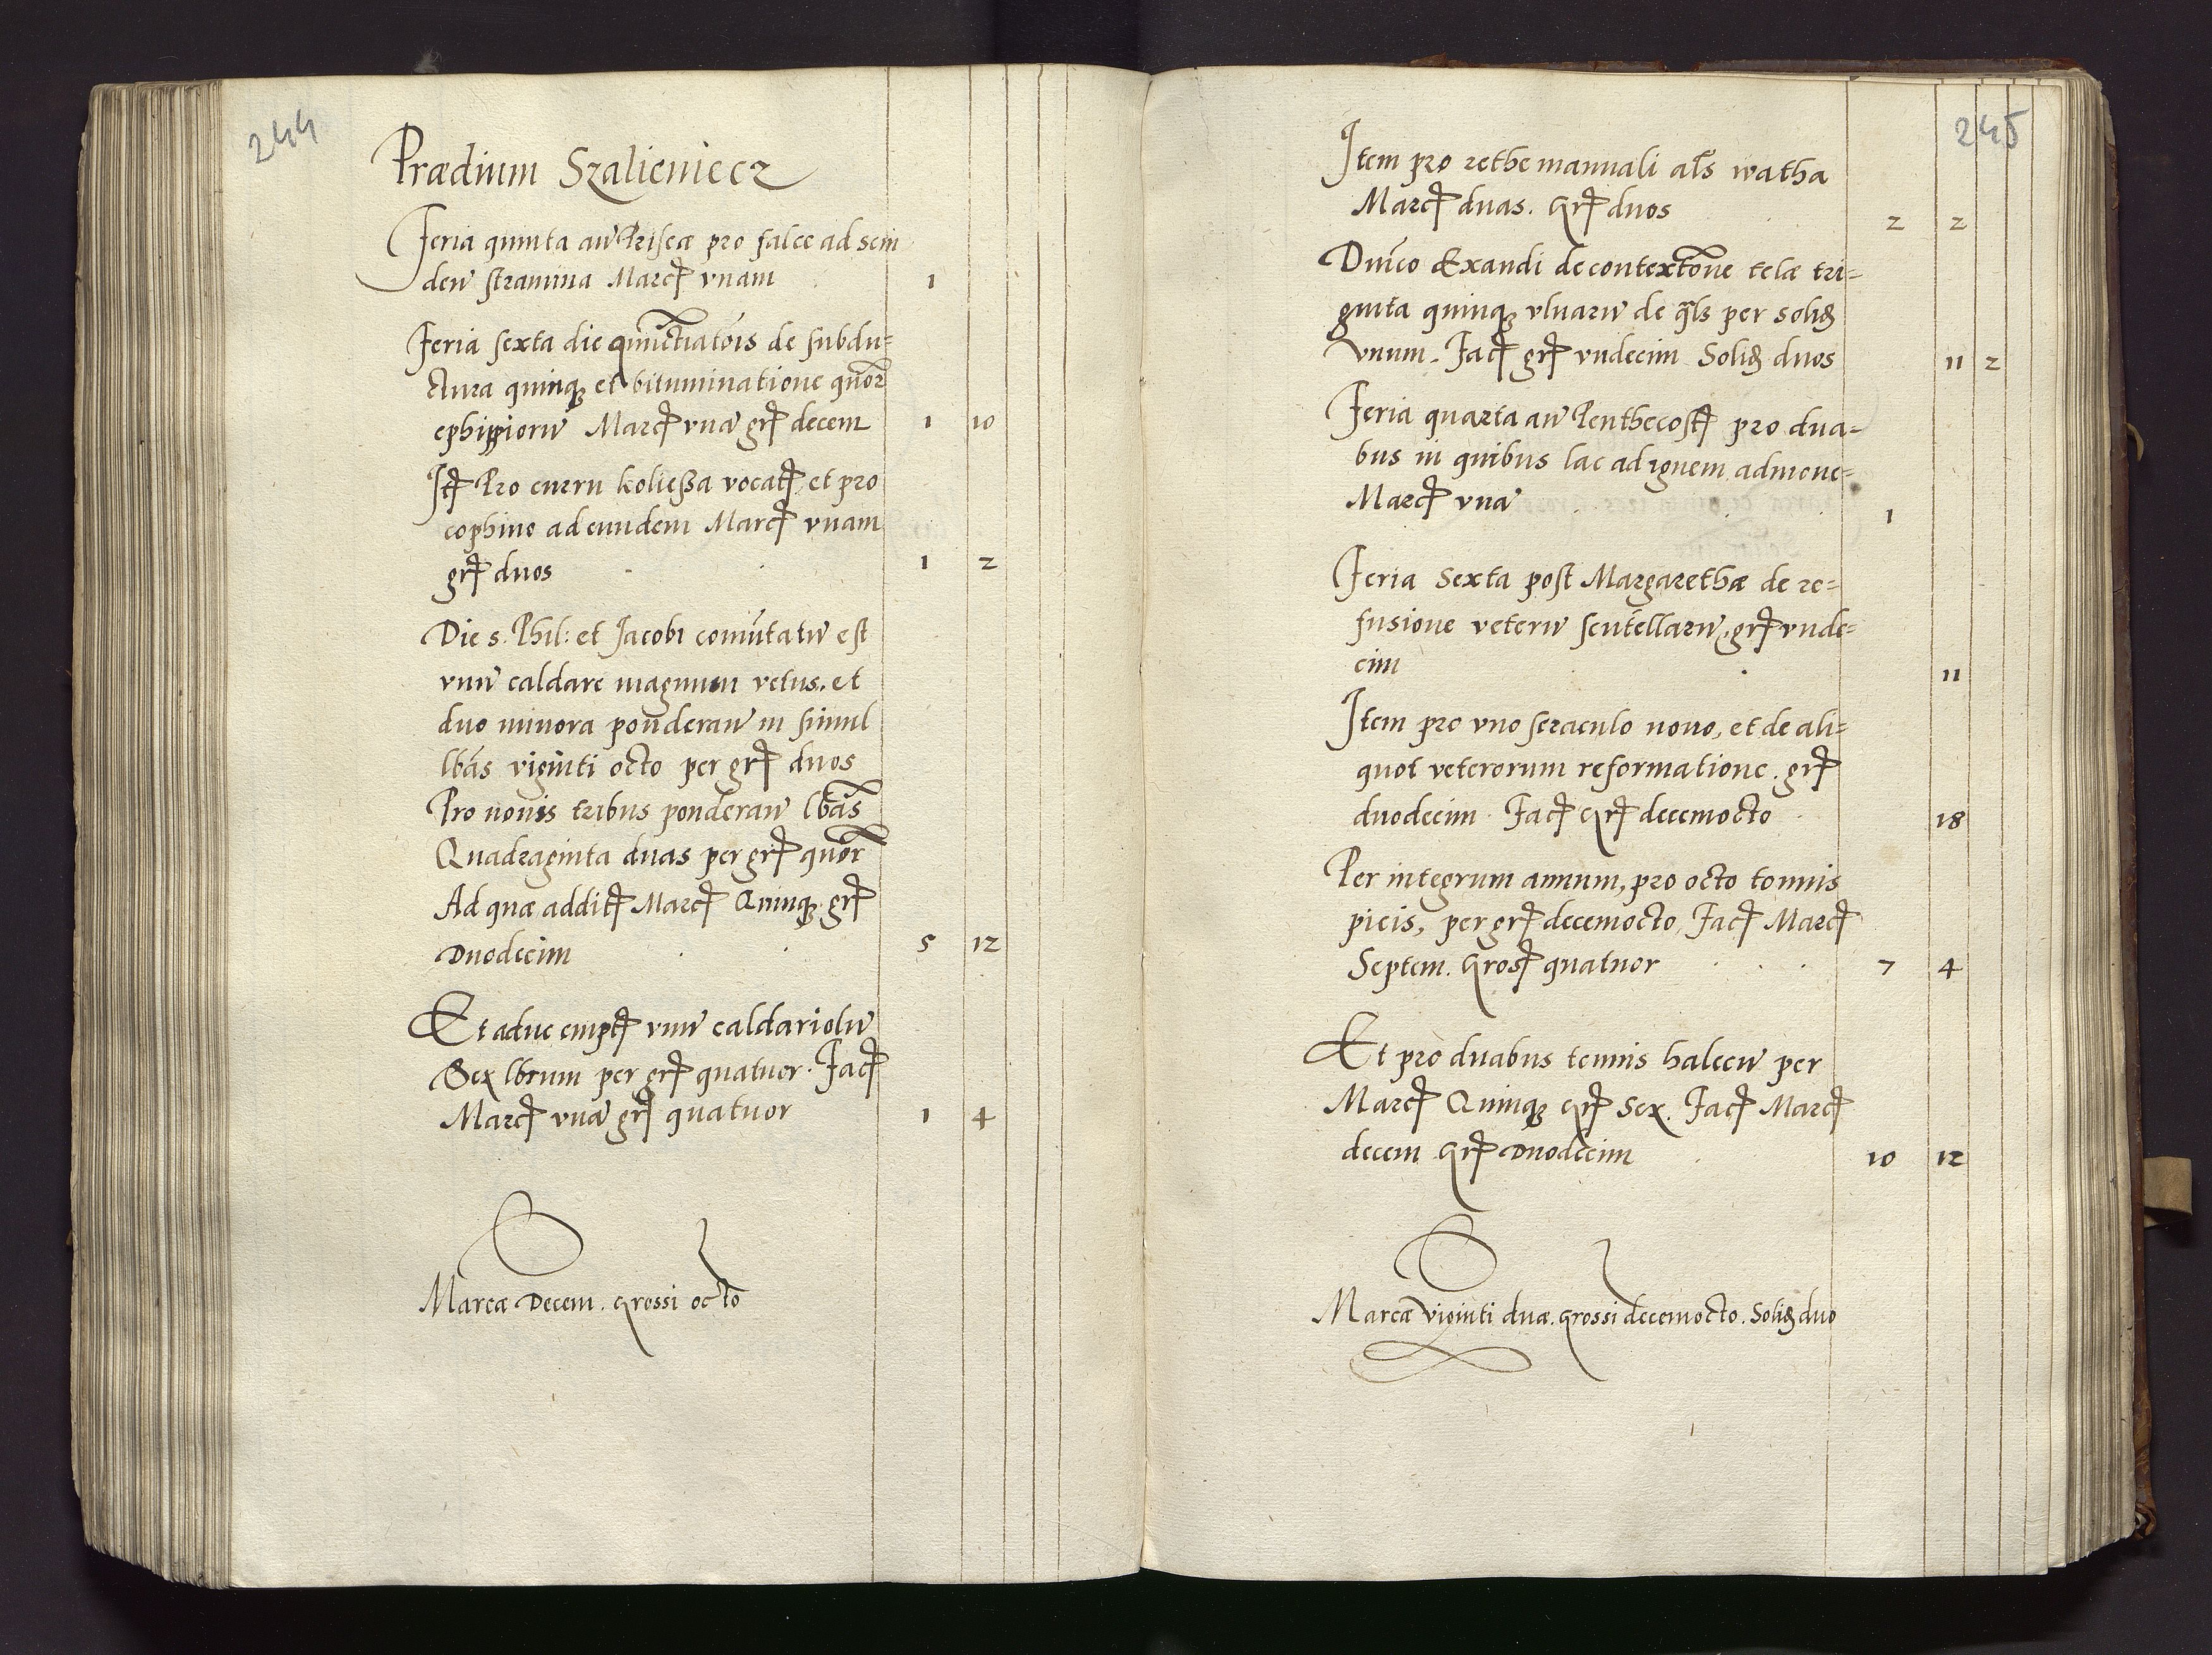 244
Prædium Szalieniecz
Feria quinta an̄ Priscæ pro falce ad scin
den̄ stramina Marcꝭ vnam 1
Feria sexta die de subdu=
ctura quinqꝫ et bituminatione quor
ephippiorū Marcꝭ vnā grꝭ decem 1 10
Itꝭ Pro curru koließa vocatꝭ et pro
cophino ad eundem Marcꝭ vnam
grꝭ duos 1 2
Die s. Phil: et Jacobi com̄utatū est
vnū caldare magnum vetus. et
duo minora ponderan̄ in simul
lbās viginti octo per grꝭ duos
Pro nouis tribus ponderan̄ lbās
Quadraginta duas per grꝭ quor
Ad quæ additꝭ Marcꝭ Quinqꝫ grꝭ
Duodecim 5 12
Et aduc emptꝭ vnū caldariolū
Sex lbrum per grꝭ quatuor. Facꝭ
Marcꝭ vnā grꝭ quatuor 1 4
Marcæ Decem. Grossi octo
245
Item pro rethe manuali als̄ watha
Marcꝭ duas. Grꝭ duos 2 2
Dnīco Exaudi de contextōne telæ tri=
ginta quinqꝫ vlnarū de per solid
vnum. Facꝭ grꝭ vndecim Solid duos 11 2
Feria quarta an̄ Penthecostꝭ pro dua=
bus in quibus lac ad ignem admoue=
Marcꝭ vnā 1
Feria Sexta post Margarethæ de re=
fusione veterū scutellarū, grꝭ vnde=
cim 11
Item pro vno seraculo nouo, et de ali=
quot veterorum reformatione. grꝭ
duodecim. Facꝭ Grꝭ decemocto 18
Per integrum annum, pro octo tonnis
picis, per grꝭ decemocto, Facꝭ Marcꝭ
Septem. Grosꝭ quatuor 7 4
Et pro duabus tennis halecū per
Marcꝭ Quinqꝫ Grꝭ Sex. Facꝭ Marcꝭ
decem Grꝭ Duodecim 10 12
Marcæ viginti duæ. Grossi decemocto. Solid duo